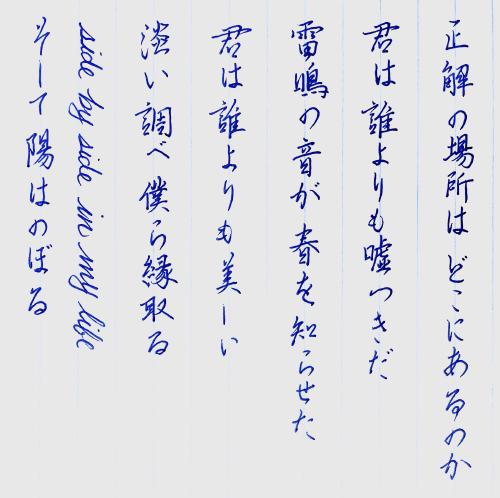 正解の場所は どこにあるのか
君は誰よりも嘘つきだ
雷鳴の音が春を知らせた
君は誰よりも美しい
淡い調べ僕ら縁取る
side by side in my life
そして陽はのぼる